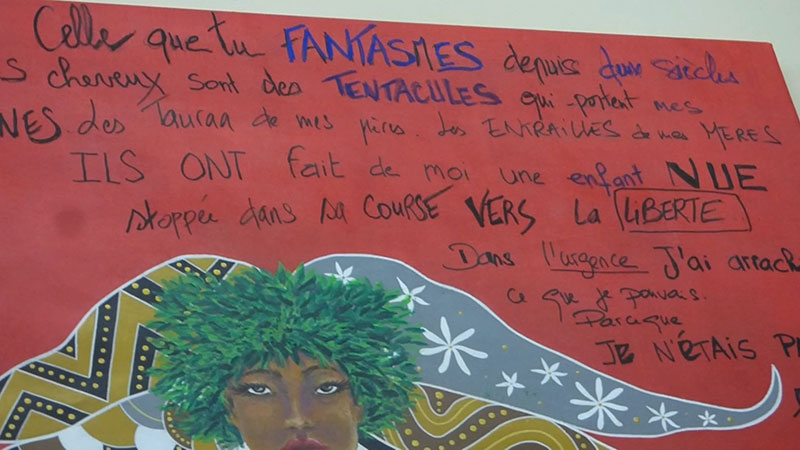 Celle que tu FANTASMES depuis deux siècles
s cheveux sont des TENTACULES qui portent mes
NES des Tauraa de mes pères. Les ENTRAILLES de mes MERES
ILS ONT fait de moi une enfant NUE
stoppée dans sa COURSE VERS la LIBERTE
Dans l'urgence J'ai arrach
ce que je pouvais.
Parceque
JE N'ÉTAIS PA